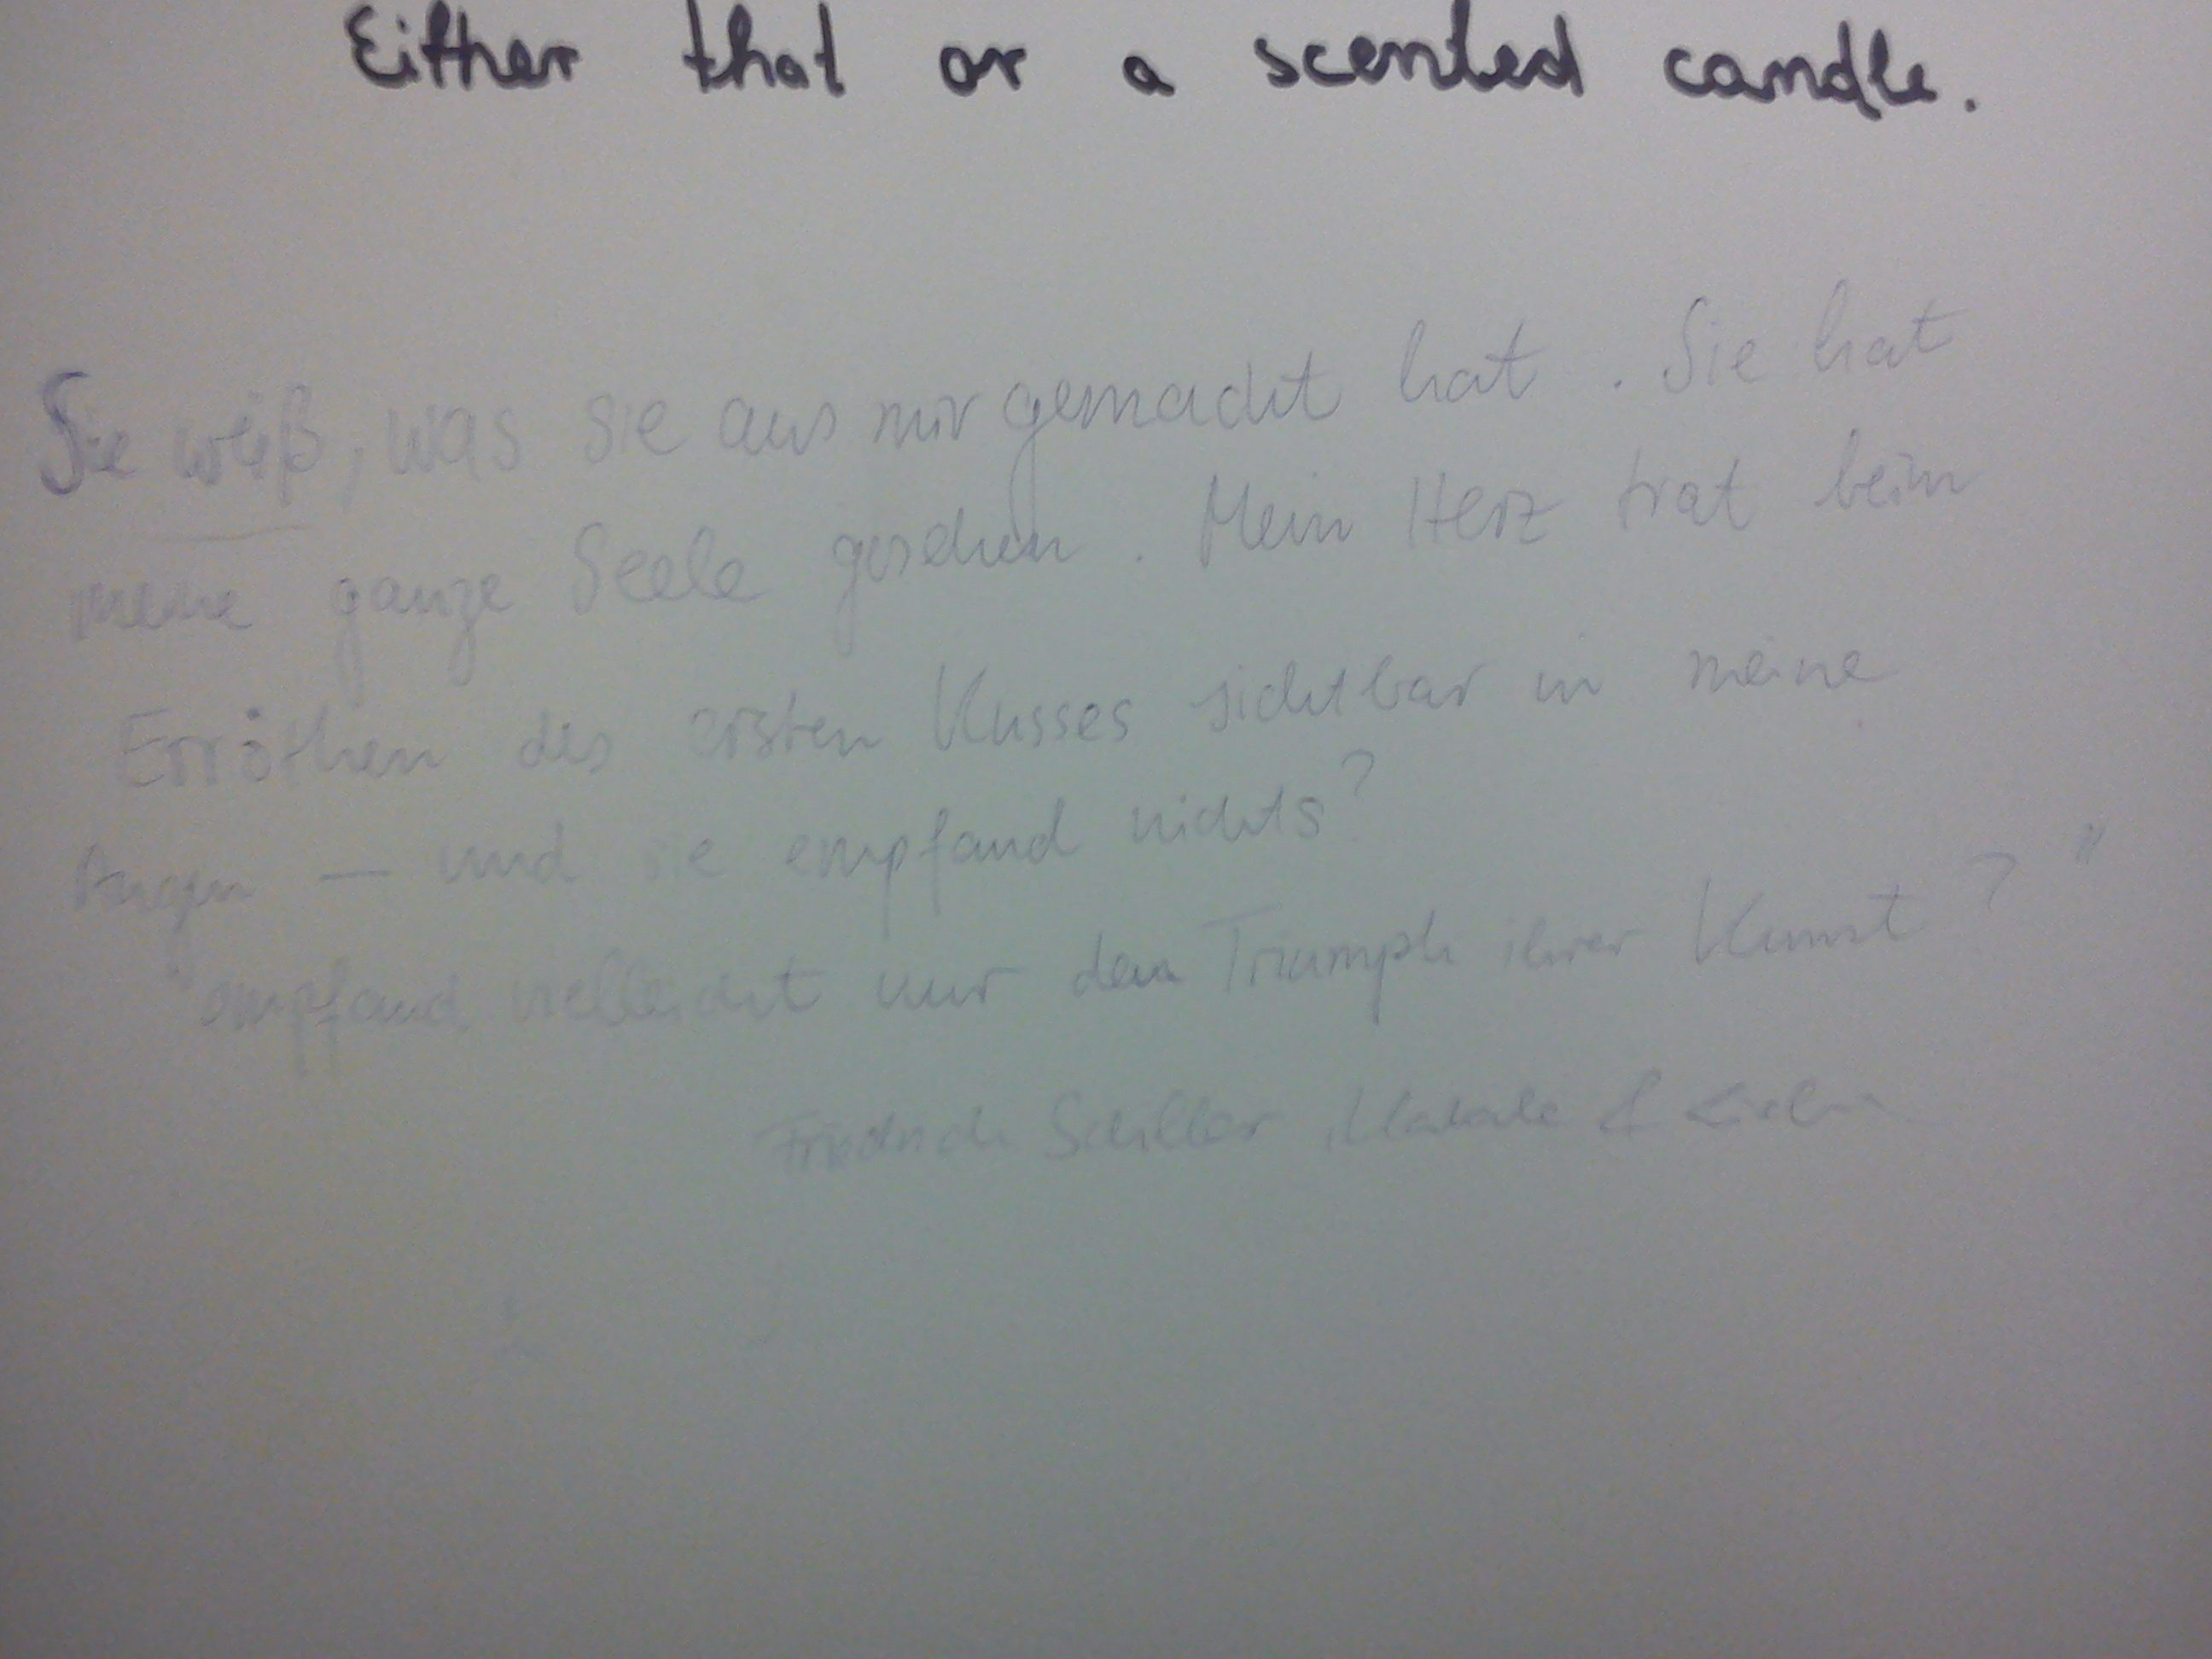 Either that or a scented candle.
Sie weiß, was sie aus mir gemacht hat. Sie hat
meine ganze Seele gesehen. Mein Herz trat beim
Erröthen des ersten Kusses sichtbar in meine
Augen — und sie empfand nichts?
"empfand vielleicht nur den Triumph ihrer Kunst?"
Friedrich Schiller, Kabale &